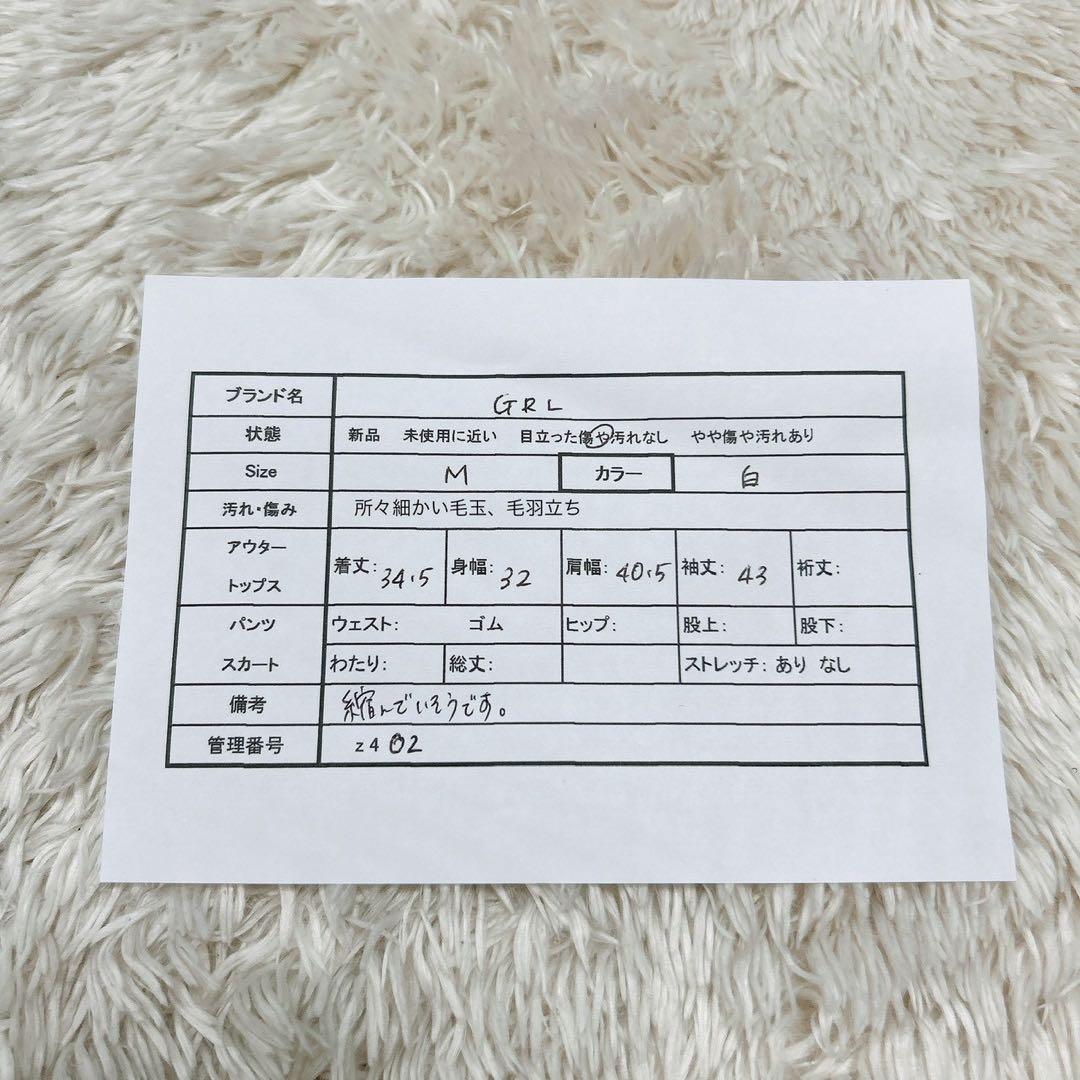 ブランド名 GRL
状態 新品 未使用に近い 目立った傷や汚れなし やや傷や汚れあり
Size M カラー 白
汚れ・傷み 所々細かい毛玉、毛羽立ち
アウター
トップス
着丈: 34.5 身幅: 32 肩幅: 40.5 袖丈: 43 裄丈:
パンツ ウェスト: ゴム ヒップ: 股上: 股下:
スカート わたり: 総丈: ストレッチ: あり なし
備考 縮んでいそうです。
管理番号 z402